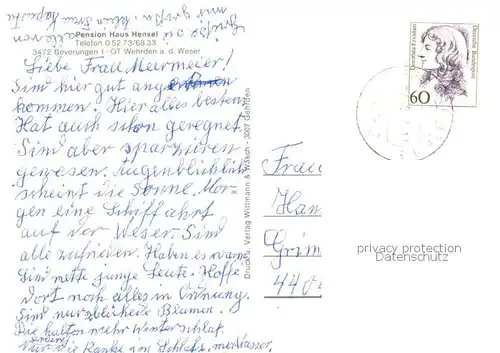 Grüße Sie alle von
Pension Haus Hensel
Telefon 0 52 73/68 33
3472 Beverungen 1 - OT Wehrden a. d. Weser
Liebe Frau Meermeier!
Sind hier gut ange
kommen. Hier alles bestens
Hat auch schon geregnet.
Sind aber spazieren
gewesen. Augenblicklich
scheint die Sonne. Mor-
gen eine Schiffahrt
auf der Weser. Sind
alle zufrieden. Haben es warm
Sind nette junge Leute. Hoffe
dort noch alles in Ordnung.
Sind nur die Blumen.
Die halten mehr Winterschlaf.
die Ranke im Schlafz.
Druck u. Verlag Wittmann & Wäsch - 3007 Gehrden
Dorothea Erxleben
Deutsche Bundespost
60
Frau
Ham
Grim
440
privacy protection
Datenschutz